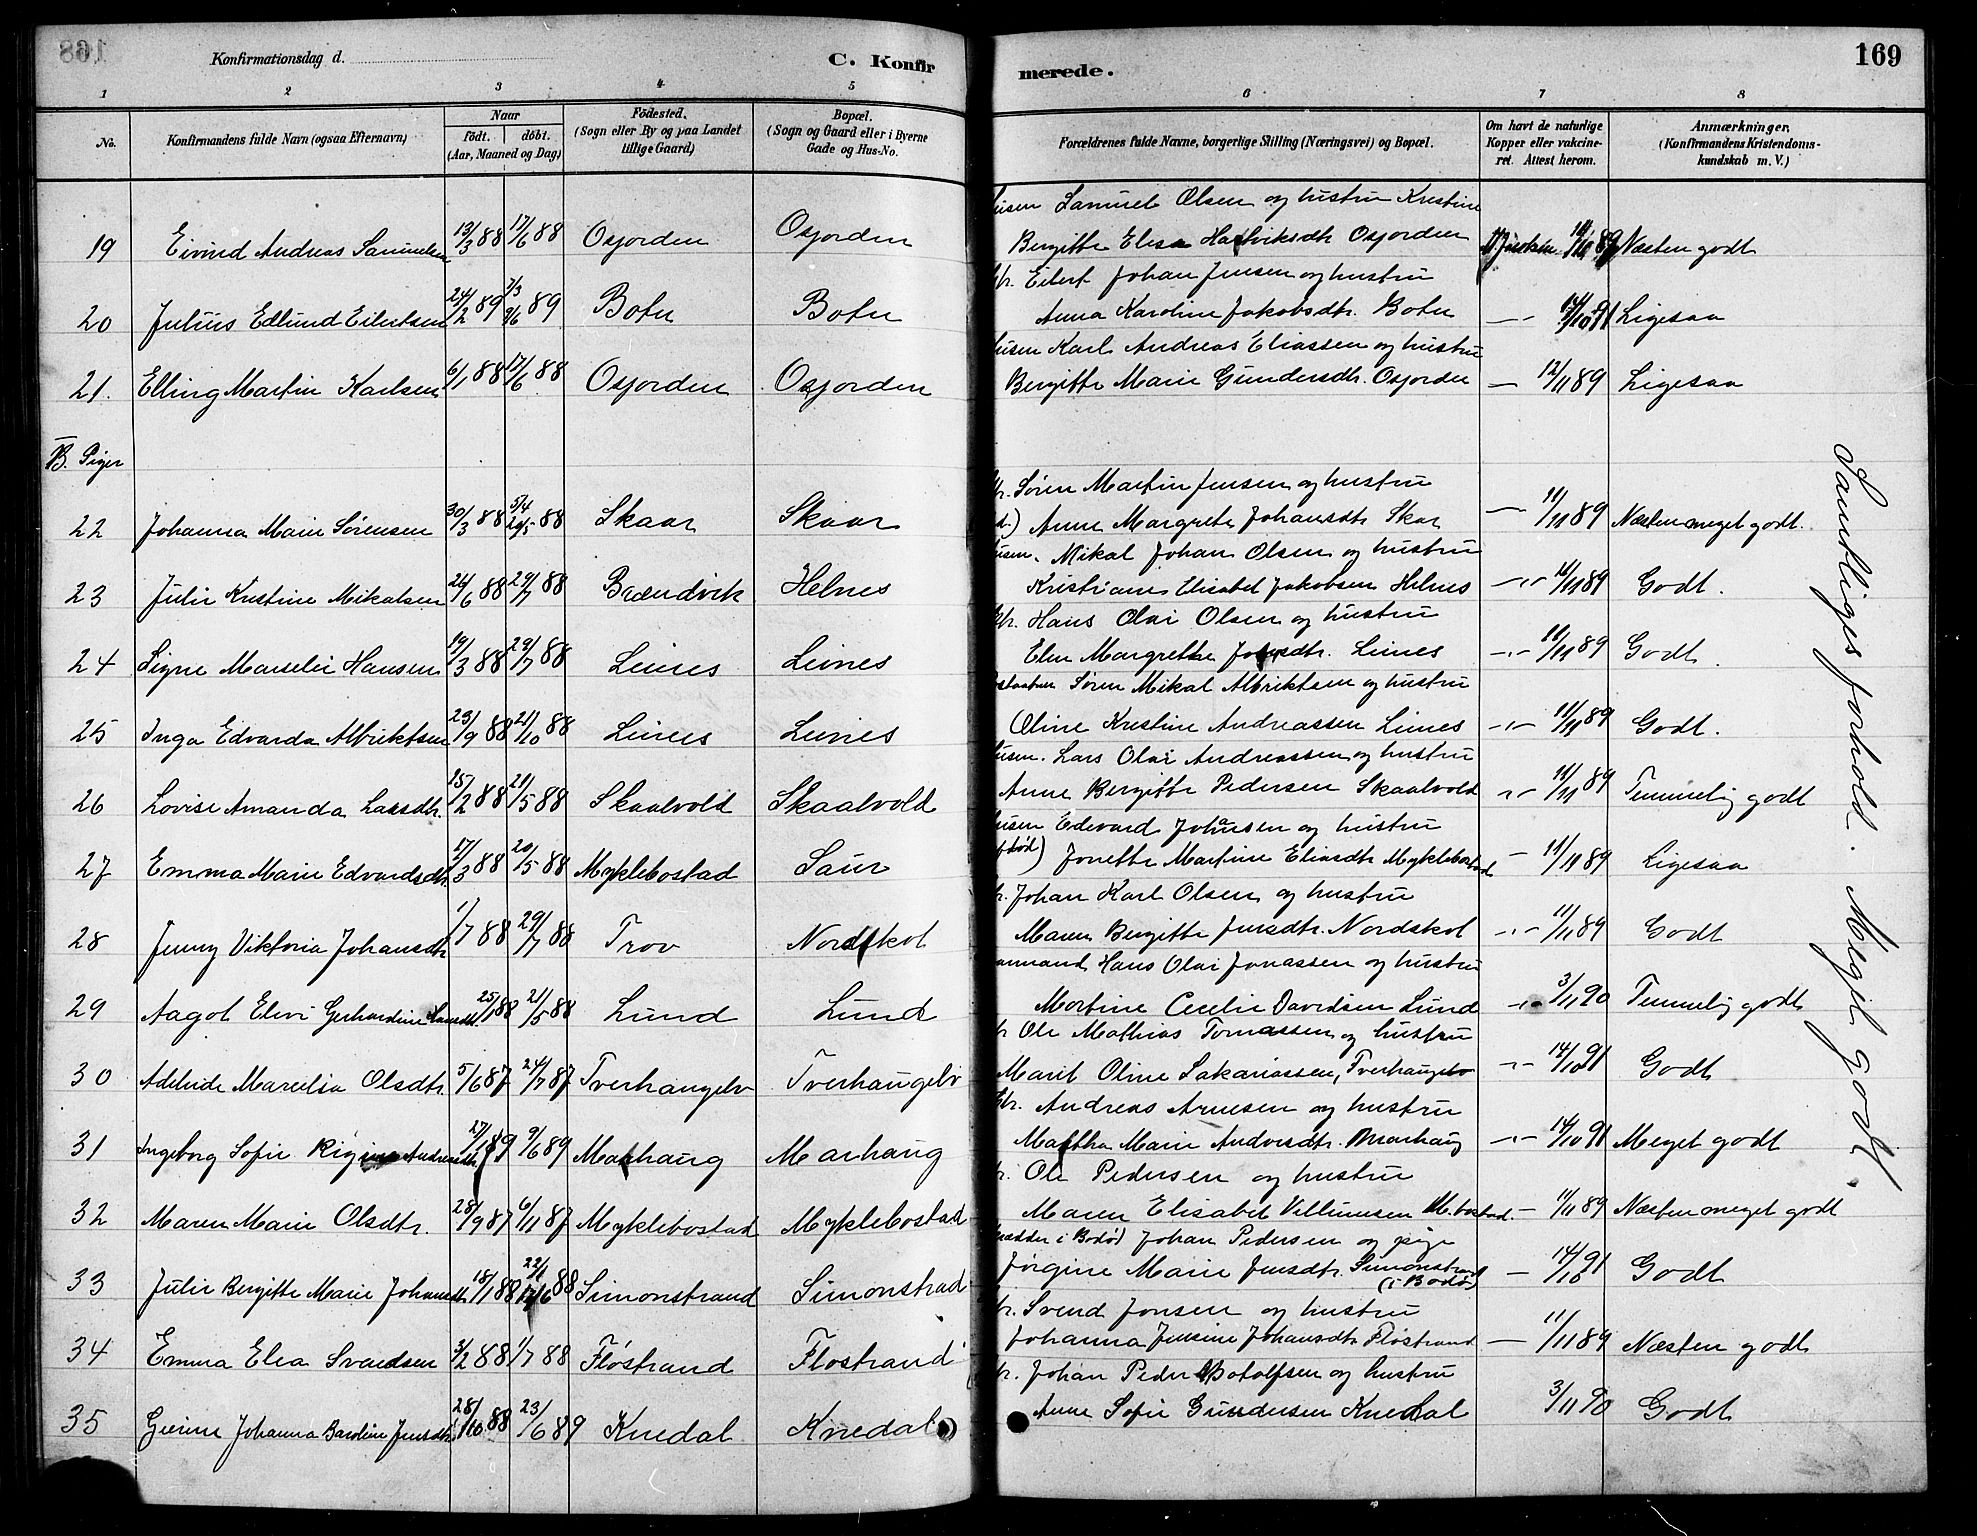 168
Konfirmationsdag d.
C. Konfir
merede.
169
1 2 3 4 5 6 7 8
No.
Konfirmandens fulde Navn (ogsaa Efternavn)
Naar
födt. döbt.
(Aar, Maaned og Dag)
Födested.
(Sogn eller By og paa Landet
tillige Gaard)
Bopæl.
(Sogn og Gaard eller i Byerne
Gade og Hus-No.
Forældrenes fulde Navne, borgerlige Stilling (Næringsvei) og Bopæl.
Om havt de naturlige
Kopper eller vakcine-
ret. Attest herom.
Anmærkninger.
(Konfirmandens Kristendoms-
kundskab m. V.)
Samuel Olsen og hustru Kristine
19 Eivind Andreas Samuelsen 13/3 88 17/6 88 Osjorden Osjorden Bergitte Elisa Hartviksdtr Osjorden 89 Næsten godt
Eilert Johan Jensen og hustru
20 Julius Edlund Eilertsen 24/2 89 7/3 9/6 89 Botn Botn Anna Karoline Jakobsdtr. Botn 14/10 91 Ligesaa
Karl Andreas Eliassen og hustru
21. Elling Martin Karlsen 6/1 88 17/6 88 Osjorden Osjorden Bergitte Marie Gundersdtr. Osjorden — 12/11 89 Ligesaa
B. Piger
Søren Martin Jensen og hustru
22 Johanna Marie Sørensen 30/3 88 5/4 20/5 88 Skaar Skaar Anne Margrete Johansdtr Skar — 11/11 89 Næsten meget godt.
Mikal Johan Olsen og hustru
23 Julie Kristine Mikalsen 24/6 88 29/7 88 Brændvik Helnes Kristiane Elisabet Jakobsen Helnes -"- 11/11 89 Godt.
Hans Olai Olsen og hustru
24 Signe Marselie Hansen 19/3 88 29/7 88 Leines Leines Elen Margrethe Leines -"- 11/11 89 Godt.
Søren Mikal Albriktsen og hustru
25 Inga Edvarda Albriktsen 23/9 88 21/10 88 Leines Leines Oline Kristine Andreassen Leines -"- 11/11 89 Godt.
Lars Olai Andreassen og hustru
26 Lovise Amanda Larsdtr. 25/2 88 21/5 88 Skaalvold Skaalvold Anne Bergitte Pedersen Skaalvold -"- 11/11 89 Temmelig godt
Edevard Johansen og hustru
27 Emma Marie Edvardsdtr 17/3 88 20/5 88 Myklebostad Saur død) Jonette Martine Eliasdtr Myklebostad — 11/11 89 Ligesaa
Johan Karl Olsen og hustru
28 Jenny Viktoria Johansdtr 1/7 88 29/7 88 Trov Nordskot Maren Bergitte Jensdtr. Nordskot -"- 11/11 89 Godt
Hans Olai Jonassen og hustru
29 Aagot Elevi Gerhardine Hansdtr. 25/1 88 21/5 88 Lund Lund Martine Cecelie Davidsen Lund -"- 3/11 90 Temmelig godt
Ole Mathias Tomassen og hustru
30 Adeleide Marselia Olsdtr. 5/6 87 24/7 87 Tverhaugelv Tverhaugelv Marit Oline Sakariassen, Tverhaugelv -"- 14/10 91 Godt
Andreas Arnesen og hustru
31 Ingeborg Sofie Rigine Andreasdtr 27/1 89 9/6 89 Marhaug Marhaug Martha Marie Andersdtr. Marhaug -"- 14/10 91 Meget godt
Ole Pedersen og hustru
32 Maren Marie Olsdtr. 28/9 87 6/11 87 Myklebostad Myklebostad Maren Elisabet Villumsen M.bostad. — 11/11 89 Næsten meget godt
i Bodø) Johan Pedersen og pige
33 Julie Bergitte Marie Johansdtr 18/1 88 22/1 17/6 88 Simonstrand Simonstrad Jørgine Marie Jensdtr. Simonstrand (i Bodø) — 14/10 91 Godt
Svend Jonsen og hustru
34 Emma Elea Svendsen 3/2 88 1/7 88 Fløstrand Flostrand Johanna Jensine Johansdtr Fløstrand — 11/11 89 Næsten godt
Johan Peder Botolfsen og hustru
35 Gurine Johanna Bardine Jensdtr 28/10 88 23/6 89 Knedal Knedal Anne Sofie Gundersen Knedal 3/11 90 Godt
Samtliges forhold. Meget godt.